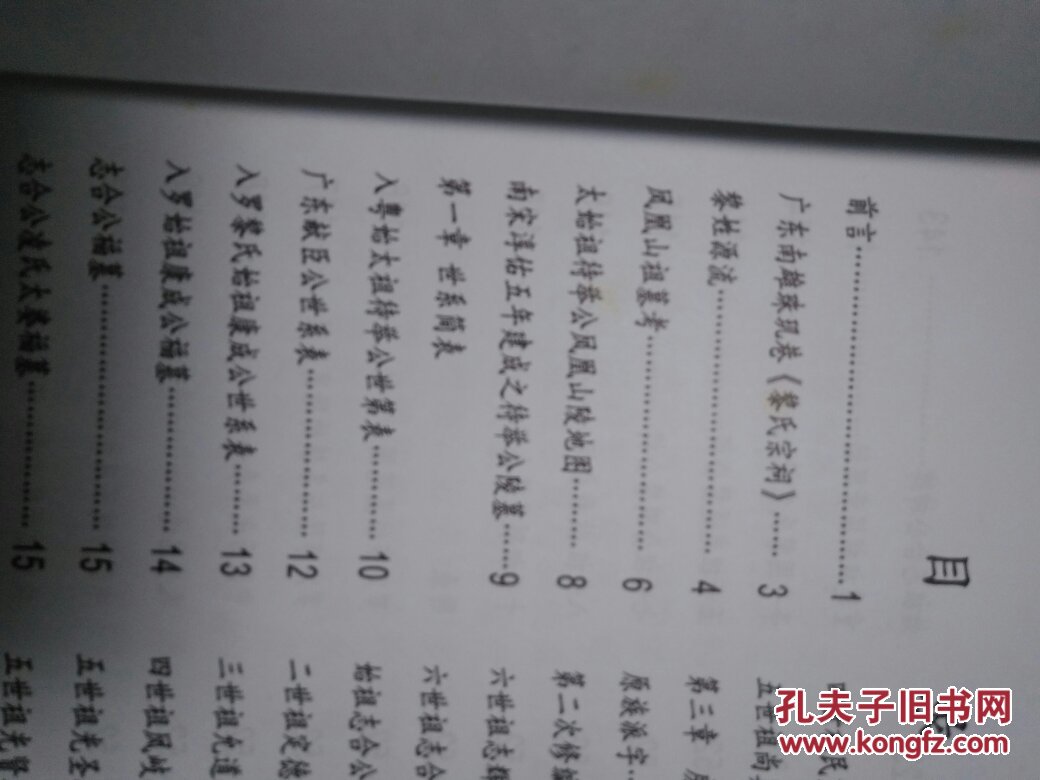 目
前言……………………………1
广东南雄珠玑巷《黎氏宗祠》……3
黎姓源流……………………4
凤凰山祖墓考………………6
太始祖待举公凤凰山陵地图………8
南宋淳佑五年建成之待举公陵墓……9
第一章 世系简表
入粤始太祖待举公世第表…………10
广东献臣公世系表………………12
入罗黎氏始祖康成公世系表………13
入罗始祖康成公福墓………………14
志合公福墓…………………………15
志合公凌氏太婆福墓………………15
五世祖尚
第三章
原族派字…
第二次修编
六世祖志群
六世祖志合
始祖志合公
二世祖定德
三世祖允道
四世祖凤岐
五世祖光圣
五世祖光贤
孔夫子旧书网
www.kongfz.com